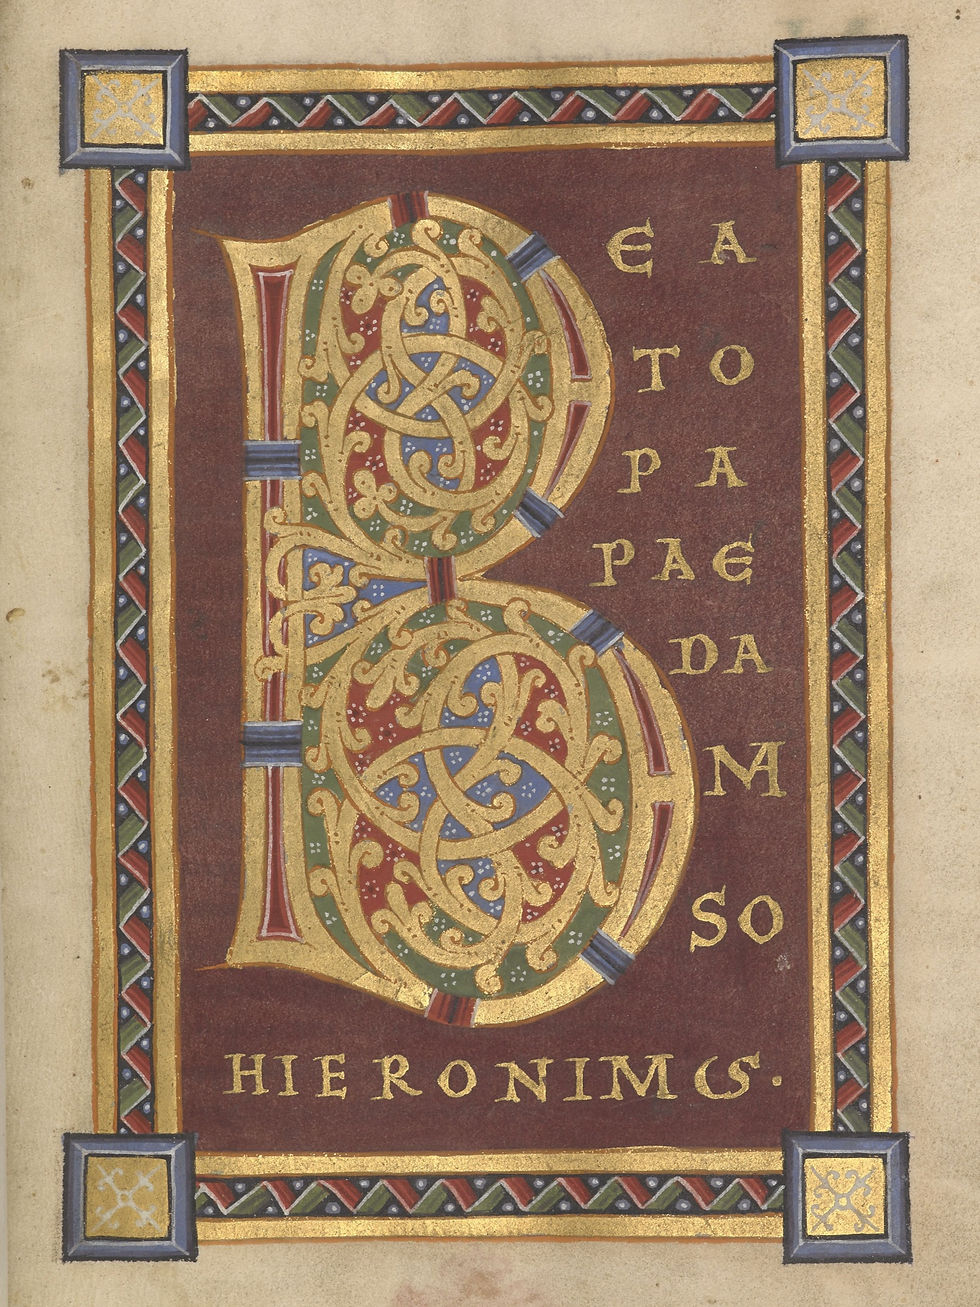 B EA
TO
PA
PAE
DA
M
SO
HIERONIMUS.